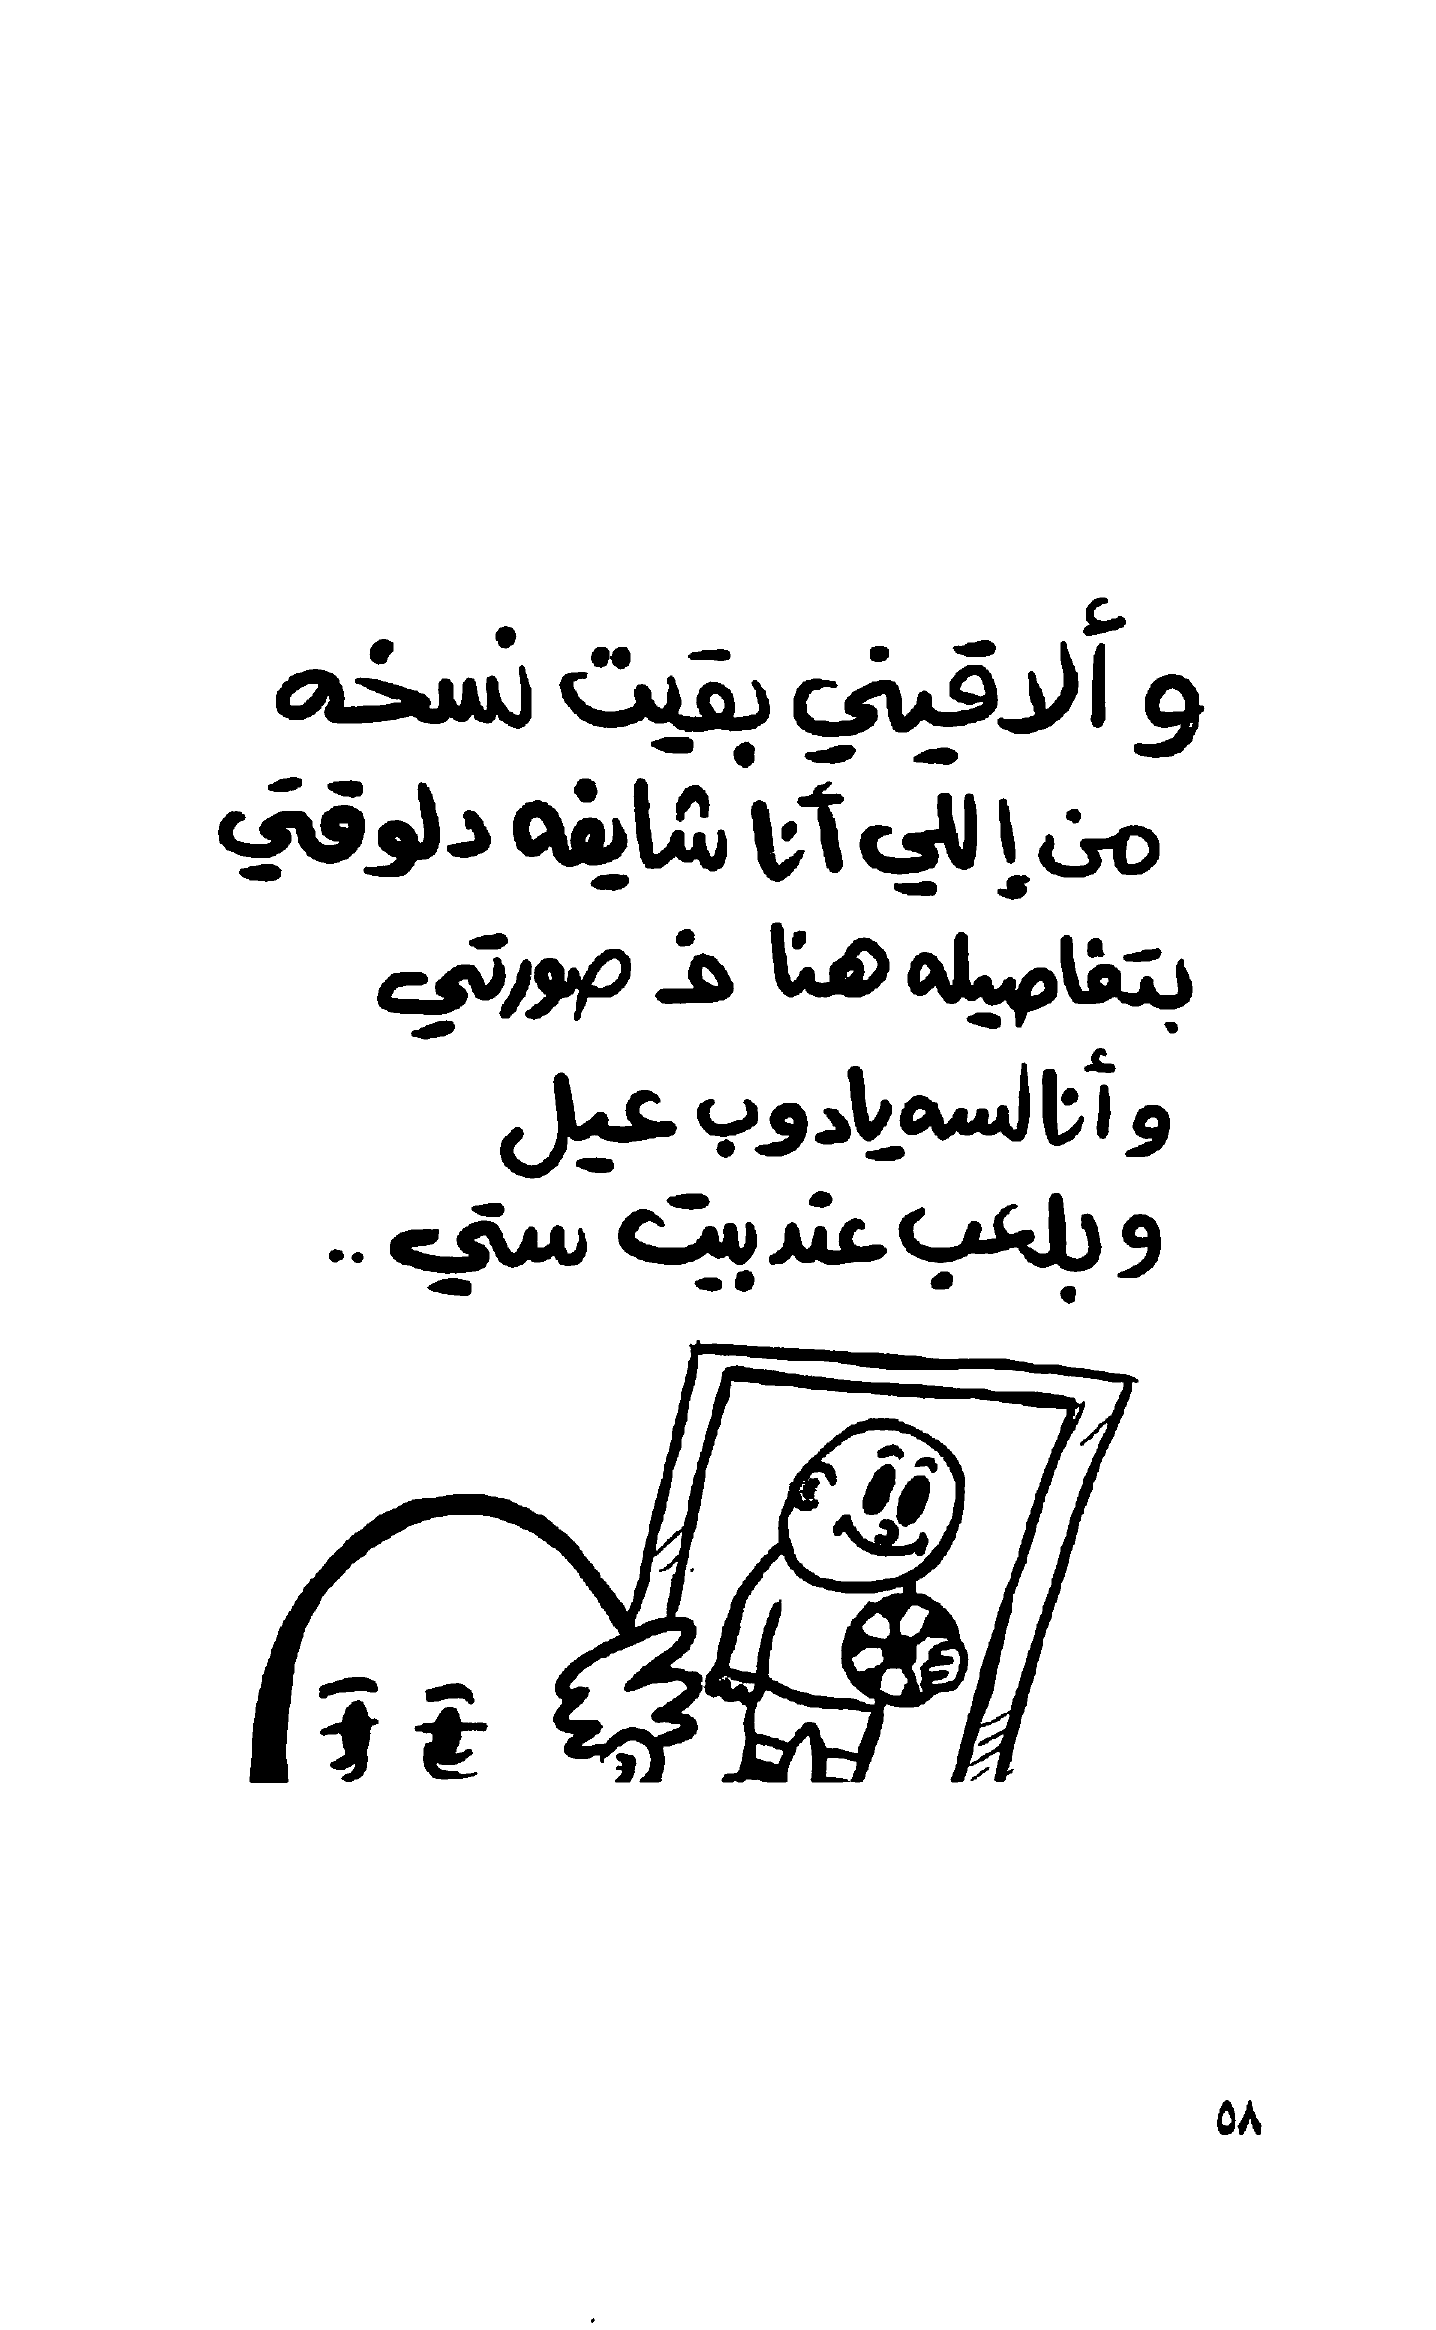 و ألاقيني بقيت نسخه
من إللي أنا شايفه دلوقتي
بتفاصيله هنا فـ صورتي
و أنا لسه يادوب عيل
و بلعب عند بيت ستي ..
٥٨